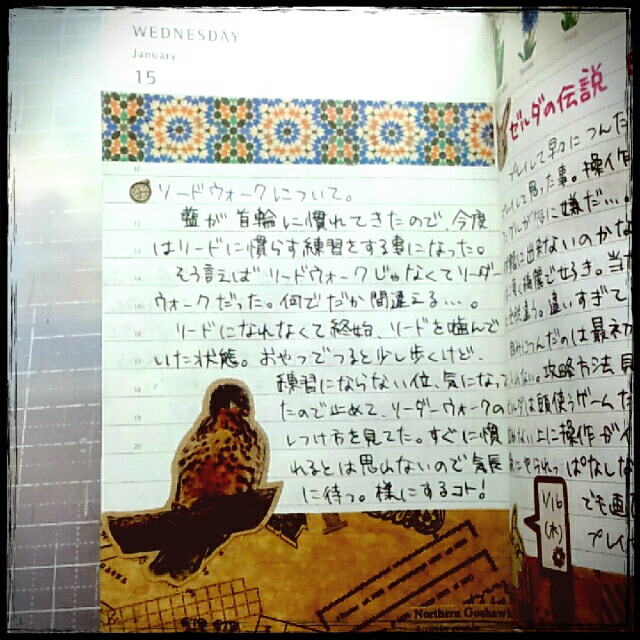 WEDNESDAY
January
15
リードウォークについて。
藍が首輪に慣れてきたので、今度
はリードに慣らす練習をする事になった。
そう言えばリードウォークじゃなくてリーダー
ウォークだった。何でだか間違える…。
リードになれなくて終始、リードを噛んで
いた状態。おやつでつると少し歩くけど、
練習にならない位、気になって
たので止めて、リーダーウォークの
しつけ方を見てた。すぐに慣
れるとは思わないので気長
に待つ。様にするコト!
10
12
13
14
15
16
17
18
19
20
Northern Goshawk
ゼルダの伝説
プレイして早々につんだ
プレイして思った事。操作
攻略方法見
は頭使うゲームな
上に操作が
ぱなしな
でも画
プレイ
1/16
(木)